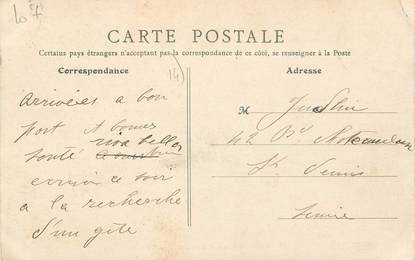 107
CARTE POSTALE
Certains pays étrangers n'acceptant pas la correspondance de ce côté, se renseigner à la Poste
Correspondance
Adresse
14)
Arrivées a bon
port et bonne
santé
ce soir
a la recherche
d'un gite
M
42 Bd
St Denis
Seine